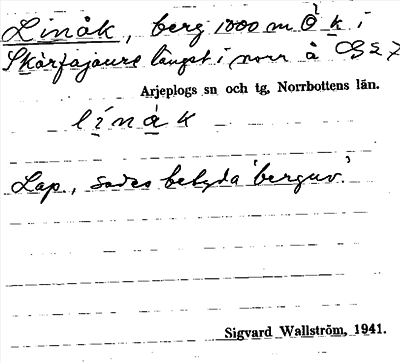 Linåk, berg 1000 m Ö k i
Skårfajaure längst i norr å GS 7
Arjeplogs sn och tg. Norrbottens län.
línåk
Lap., sades betyda 'berguv.'
Sigvard Wallström, 1941.